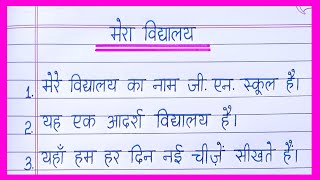 मेरा विद्यालय
1. मेरे विद्यालय का नाम जी. एन. स्कूल है।
2. यह एक आदर्श विद्यालय है।
3. यहाँ हम हर दिन नई चीज़ें सीखते हैं।